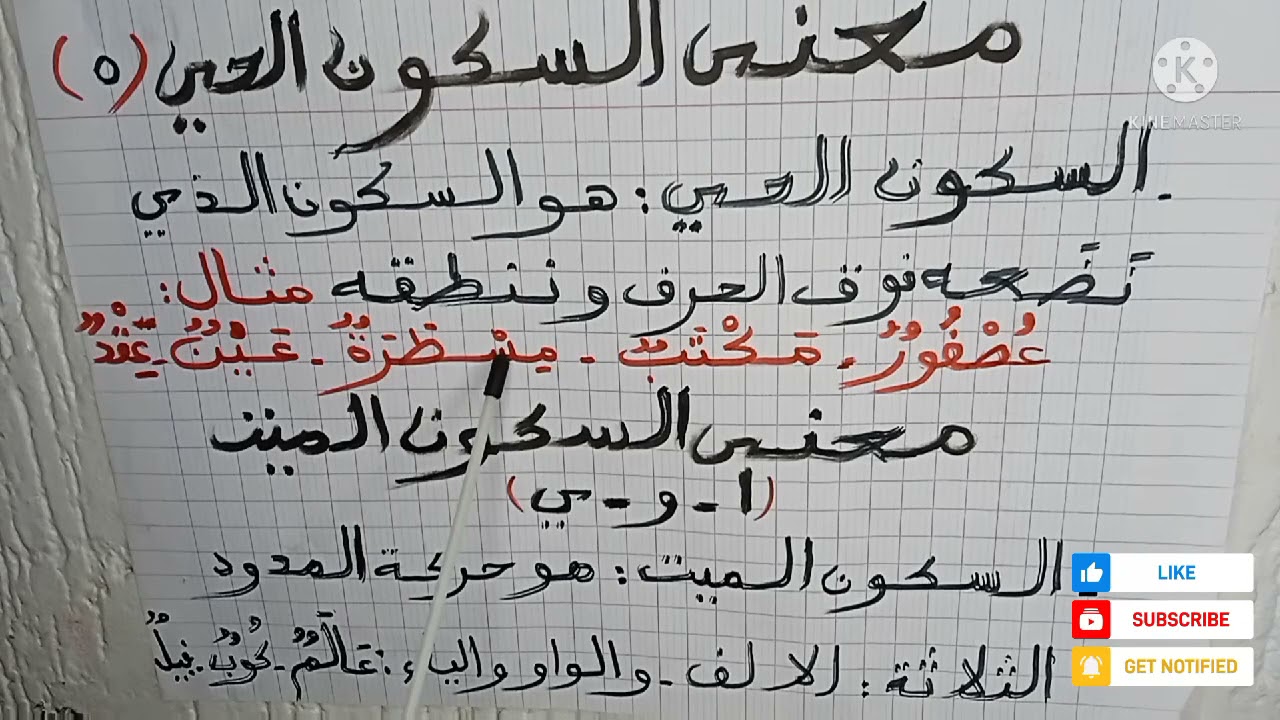 معنى السكون الحي (ه)
K
KINEMASTER
- السكون الحي: هو السكون الذي
نَضَعه فوق الحرف وننطقه مثال:
عُصْفُورٌ - مَكْتَبٌ - مِسْطَرَةٌ - عَيْنٌ - عِقْدٌ
معنى السكون الميت
(ا - و - ي)
- السكون الميت: هو حركة المدود
الثلاثة: الالف - والواو والياء: عَالَمٌ - كُوبٌ - نِيلٌ
LIKE
SUBSCRIBE
GET NOTIFIED